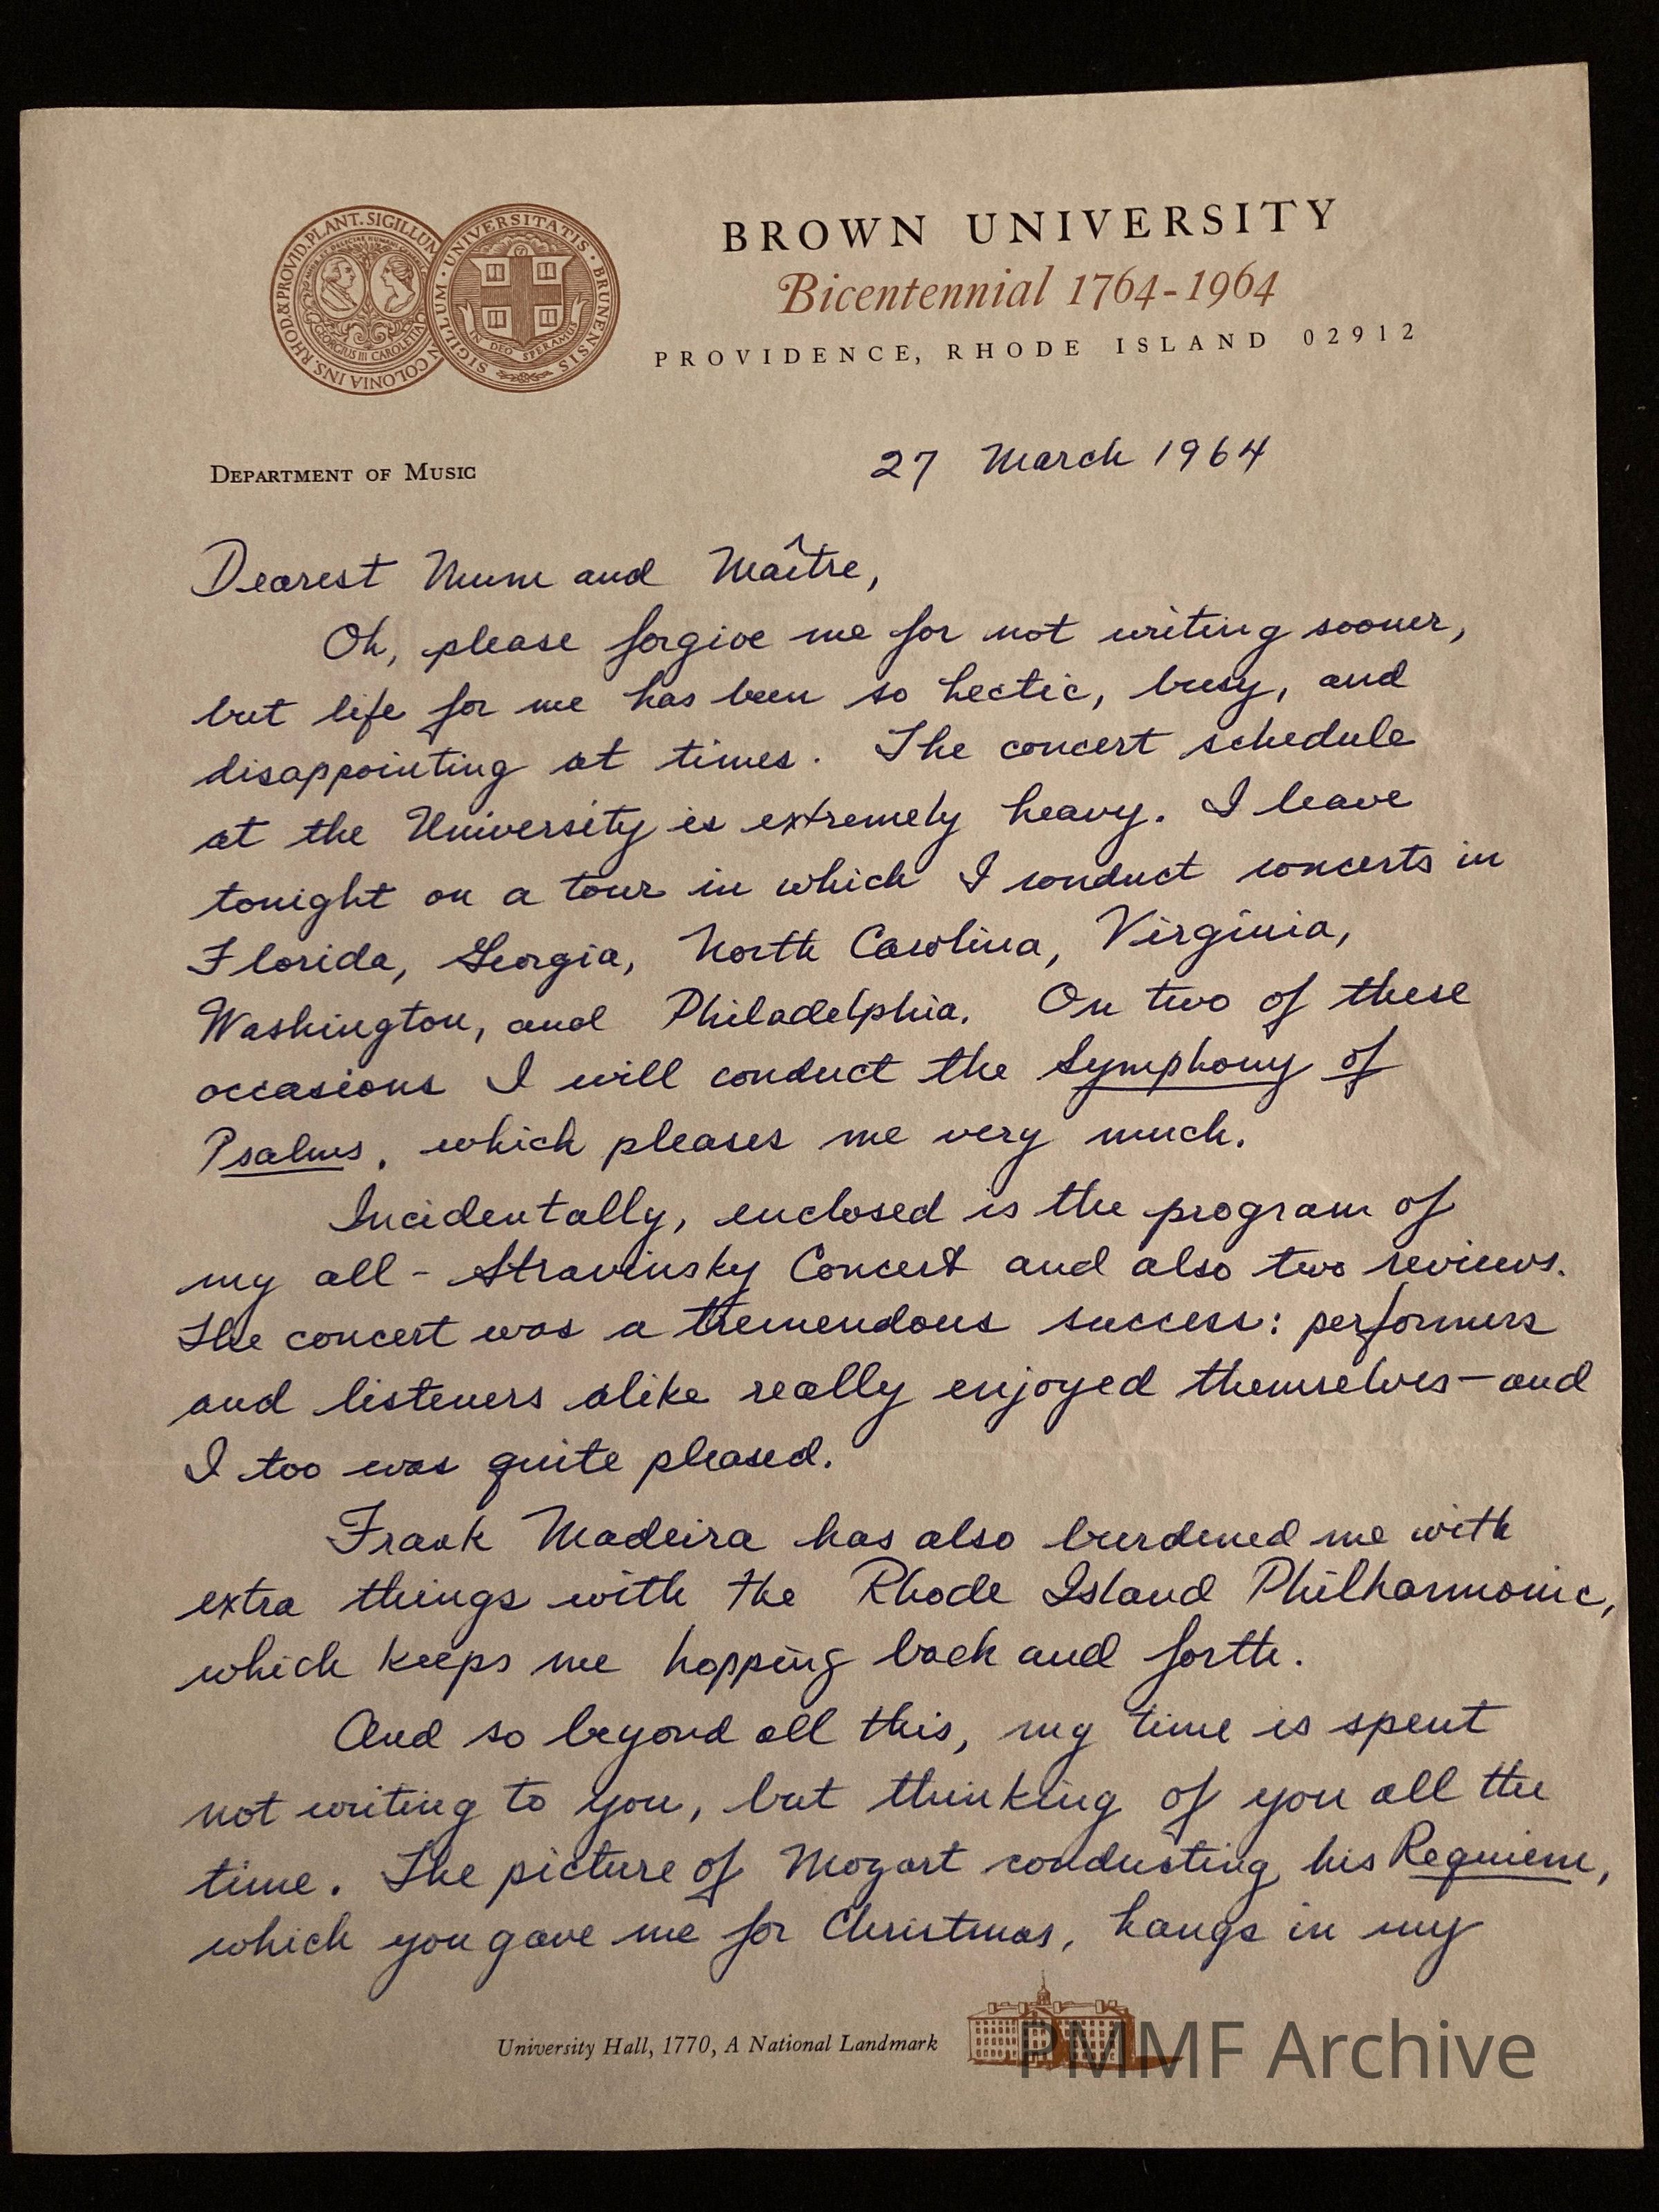 RHOD.&PROVID.PLANT. SIGILLUM COLONIA INS
GEORGIUS III CAROLETIA
SIGILLUM · UNIVERSITATIS · BRUNENSIS
IN DEO SPERAMUS
BROWN UNIVERSITY
Bicentennial 1764-1964
PROVIDENCE, RHODE ISLAND 02912
DEPARTMENT OF MUSIC
27 March 1964
Dearest Mum and Maître,
Oh, please forgive me for not writing sooner,
but life for me has been so hectic, busy, and
disappointing at times. The concert schedule
at the University is extremely heavy. I leave
tonight on a tour in which I conduct concerts in
Florida, Georgia, North Carolina, Virginia,
Washington, and Philadelphia. On two of these
occasions I will conduct the Symphony of
Psalms, which pleases me very much.
Incidentally, enclosed is the program of
my all-Stravinsky Concert and also two reviews.
The concert was a tremendous success: performers
and listeners alike really enjoyed themselves—and
I too was quite pleased.
Frank Madeira has also burdened me with
extra things with the Rhode Island Philharmonic,
which keeps me hopping back and forth.
And so beyond all this, my time is spent
not writing to you, but thinking of you all the
time. The picture of Mozart conducting his Requiem,
which you gave me for Christmas, hangs in my
University Hall, 1770, A National Landmark
PMMF Archive